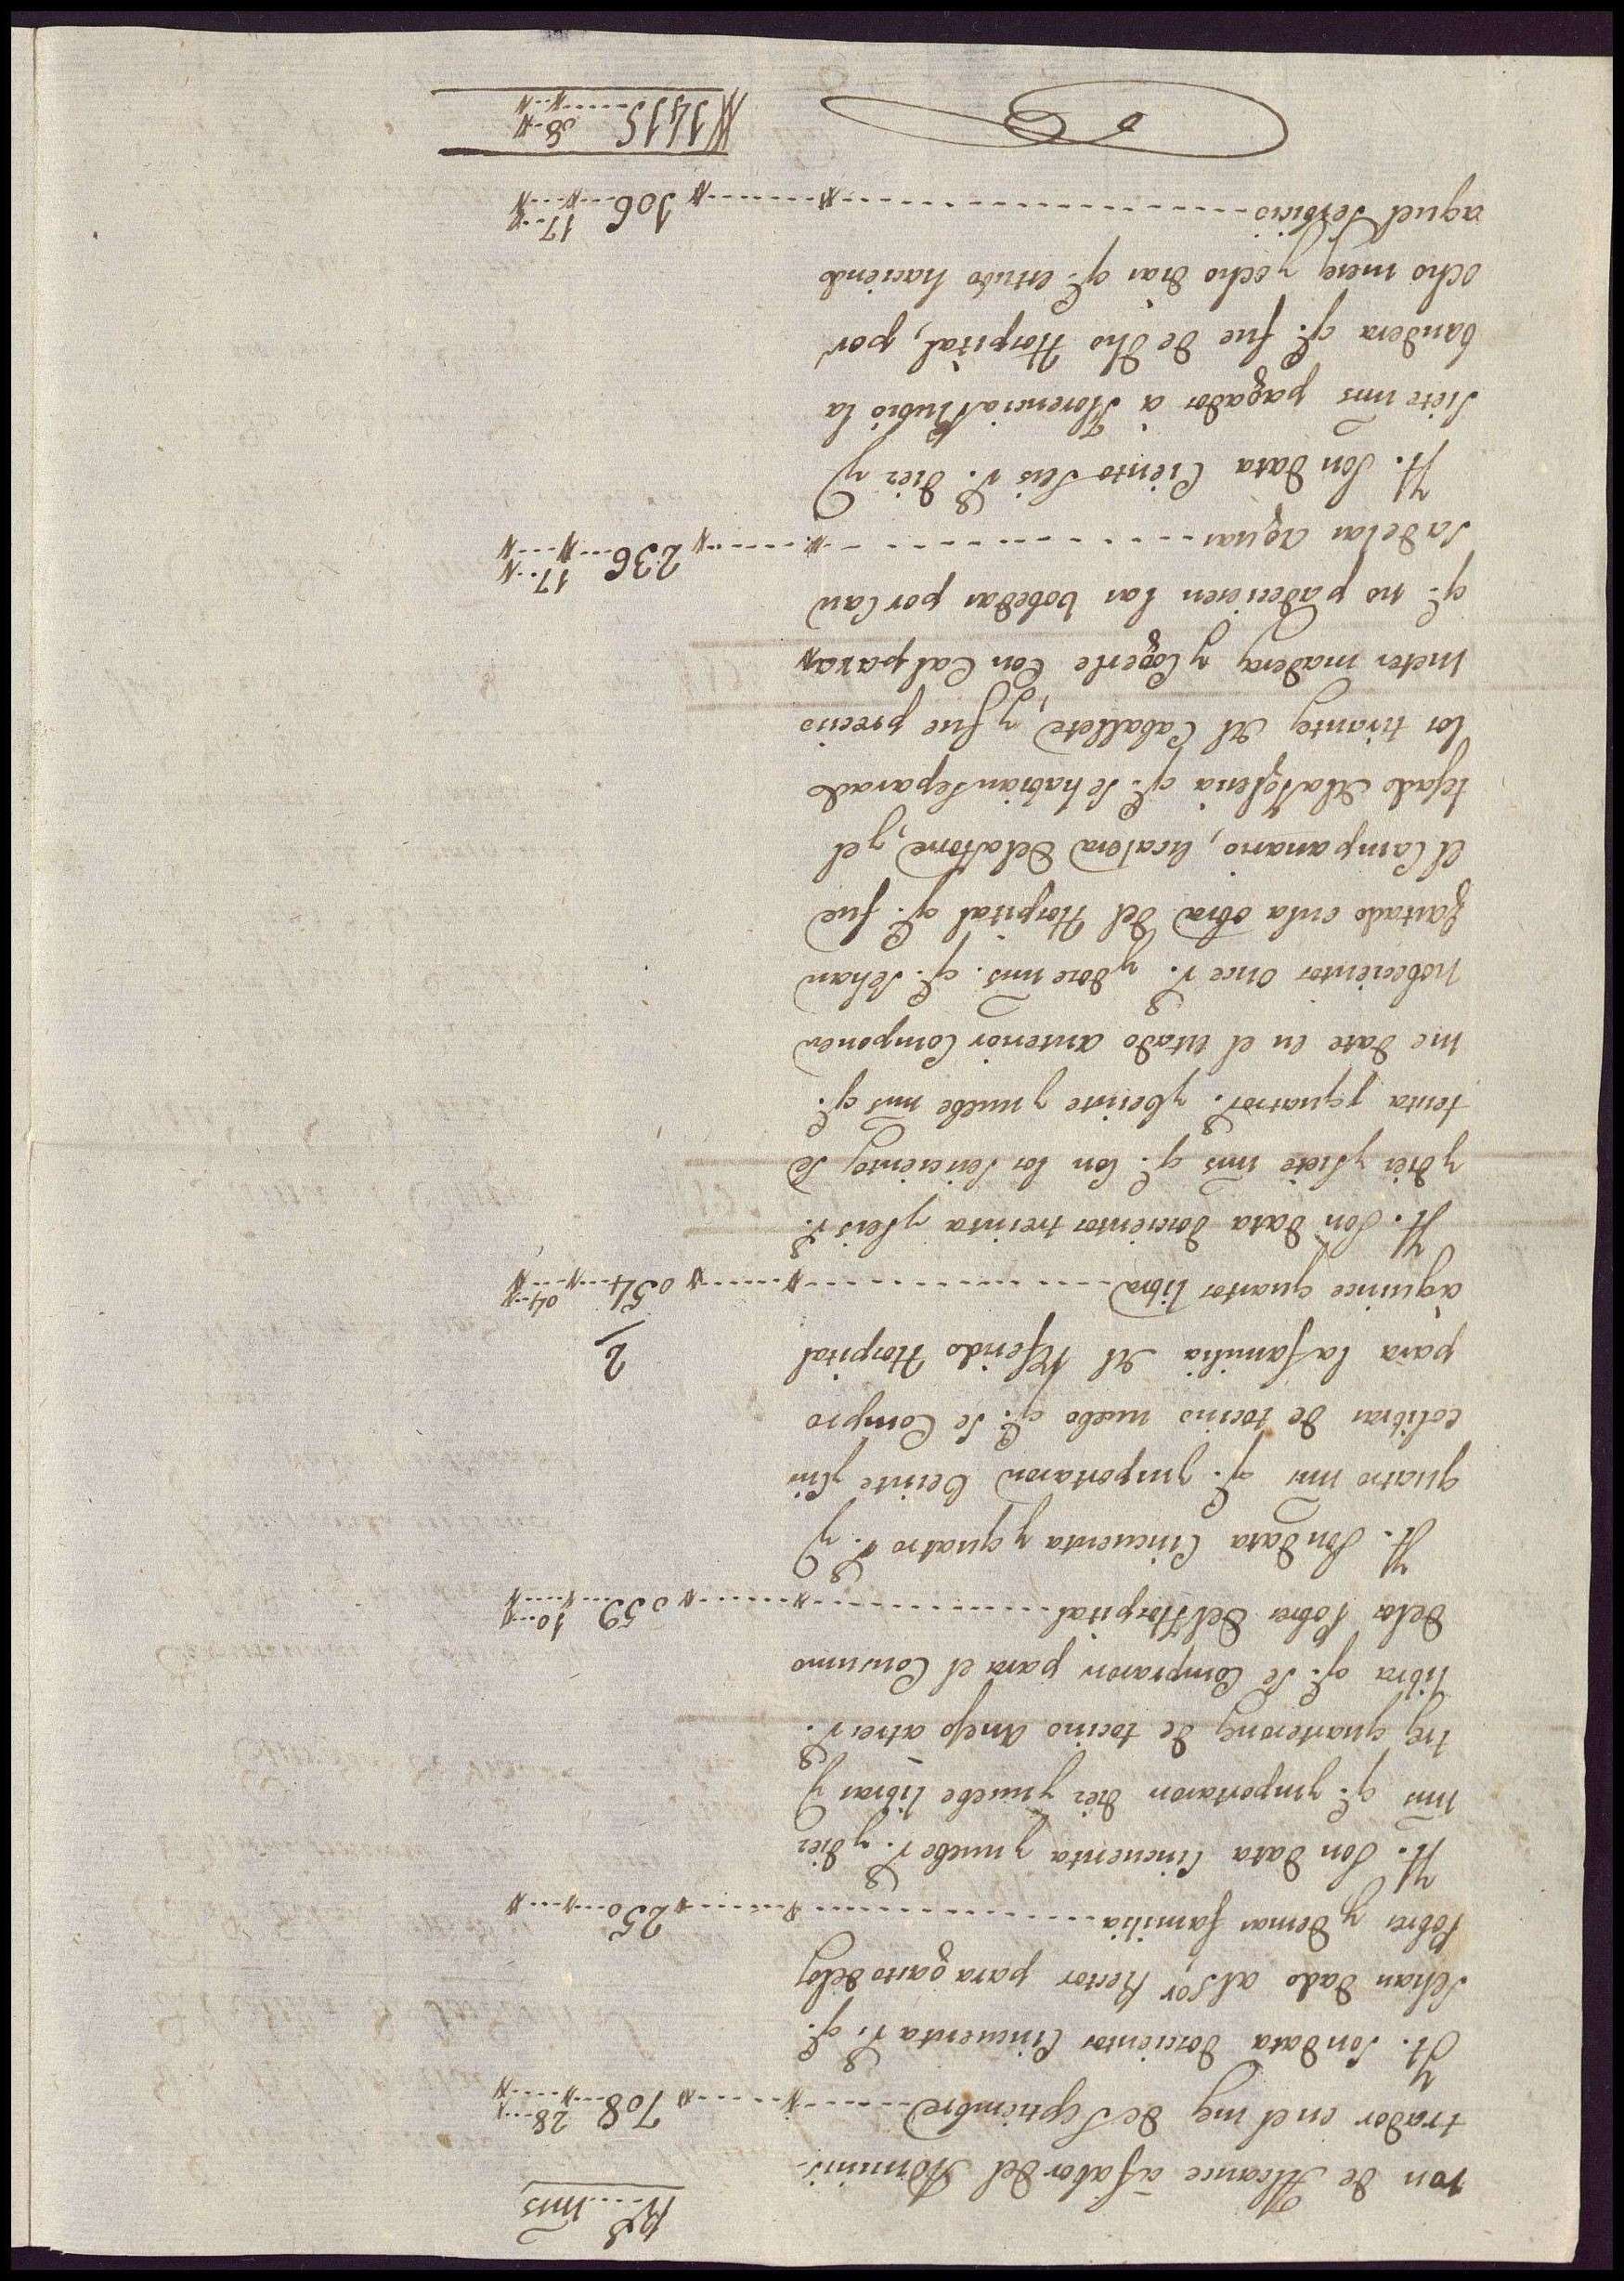 R.s mrs
ron de Alcance à fabor del Adminis-
trador en el mes de Septiembre 708 28
Yt. Son data doscientos Cincuenta r.s q.e
Sehan dado al Sor Rector para gasto delos
Pobres y demas familia 250
Yt. Son data Cincuenta y nuebe r.s y diez
mrs q.e ymportaron diez y nuebe libras y
tres quarterones de tocino Anejo atres r.s
libra q.e Se Compraron para el Consumo
delos Pobres del Hospital 059 10
Yt. Son data Cincuenta y quatro r.s y
quatro mrs q.e ymportaron Veinte y Cin
co libras de tocino nuebo q.e Se Compro
para la familia del Referido Hospital 2
aquince quartos libra 054 04
Yt. Son data doscientos treinta y Seis r.s
y diez y Siete mrs q.e Con los Seiscientos Se
tenta y quatro r.s y Veinte y nuebe mrs q.e
me date en el estado anterior Componen
nobecientos once r.s y doze mrs. q.e Sehan
gastado enla obra del Hospital q.e fue
el Campanario, escalera delaTorre, y el
tejado delaYglesia q.e Se habian Separado
los tirantes del Caballete, y fue preciso
meter maderas y Cogerle Con Cal para
q.e no padeciesen las bobedas por Cau
Sa delas Aguas 236 17
Yt. Son data Ciento Seis r.s diez y
Siete mrs pagados à Florencia Rubio la
bandera q.e fue de dho Hospital, por
ocho meses y ocho dias q.e estubo haciendo
aquel Serbicio 106 17
1415 08